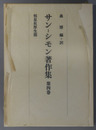 森 博 編・訳
サン-シモン著作集
第四巻
恒星社厚生閣